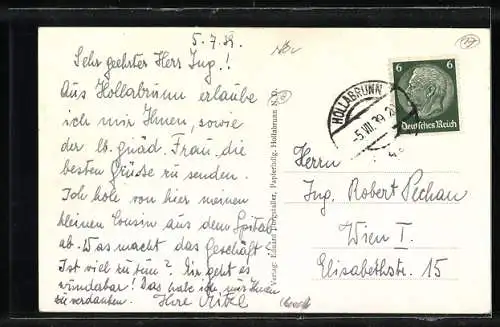 5. 7. 39.
Sehr geehrter Herr Ing.!
Aus Hollabrunn erlaube
ich mir Ihnen, sowie
der lb. gnäd. Frau, die
besten Grüsse zu senden.
Ich hole von hier meinen
kleinen Cousin aus dem Spital
ab. Was macht das Geschäft?
Ist viel zu tun? Mir geht es
wunderbar! Das habe ich nur Ihnen
zu verdanken. Ihre
Verlag: Eduard Papierhdlg. Hollabrunn N.D.
6 6
Deutsches Reich
HOLLABRUNN
-5. VII. 39
Herrn
Ing. Robert Pechan
Wien I.
Elisabethstr. 15